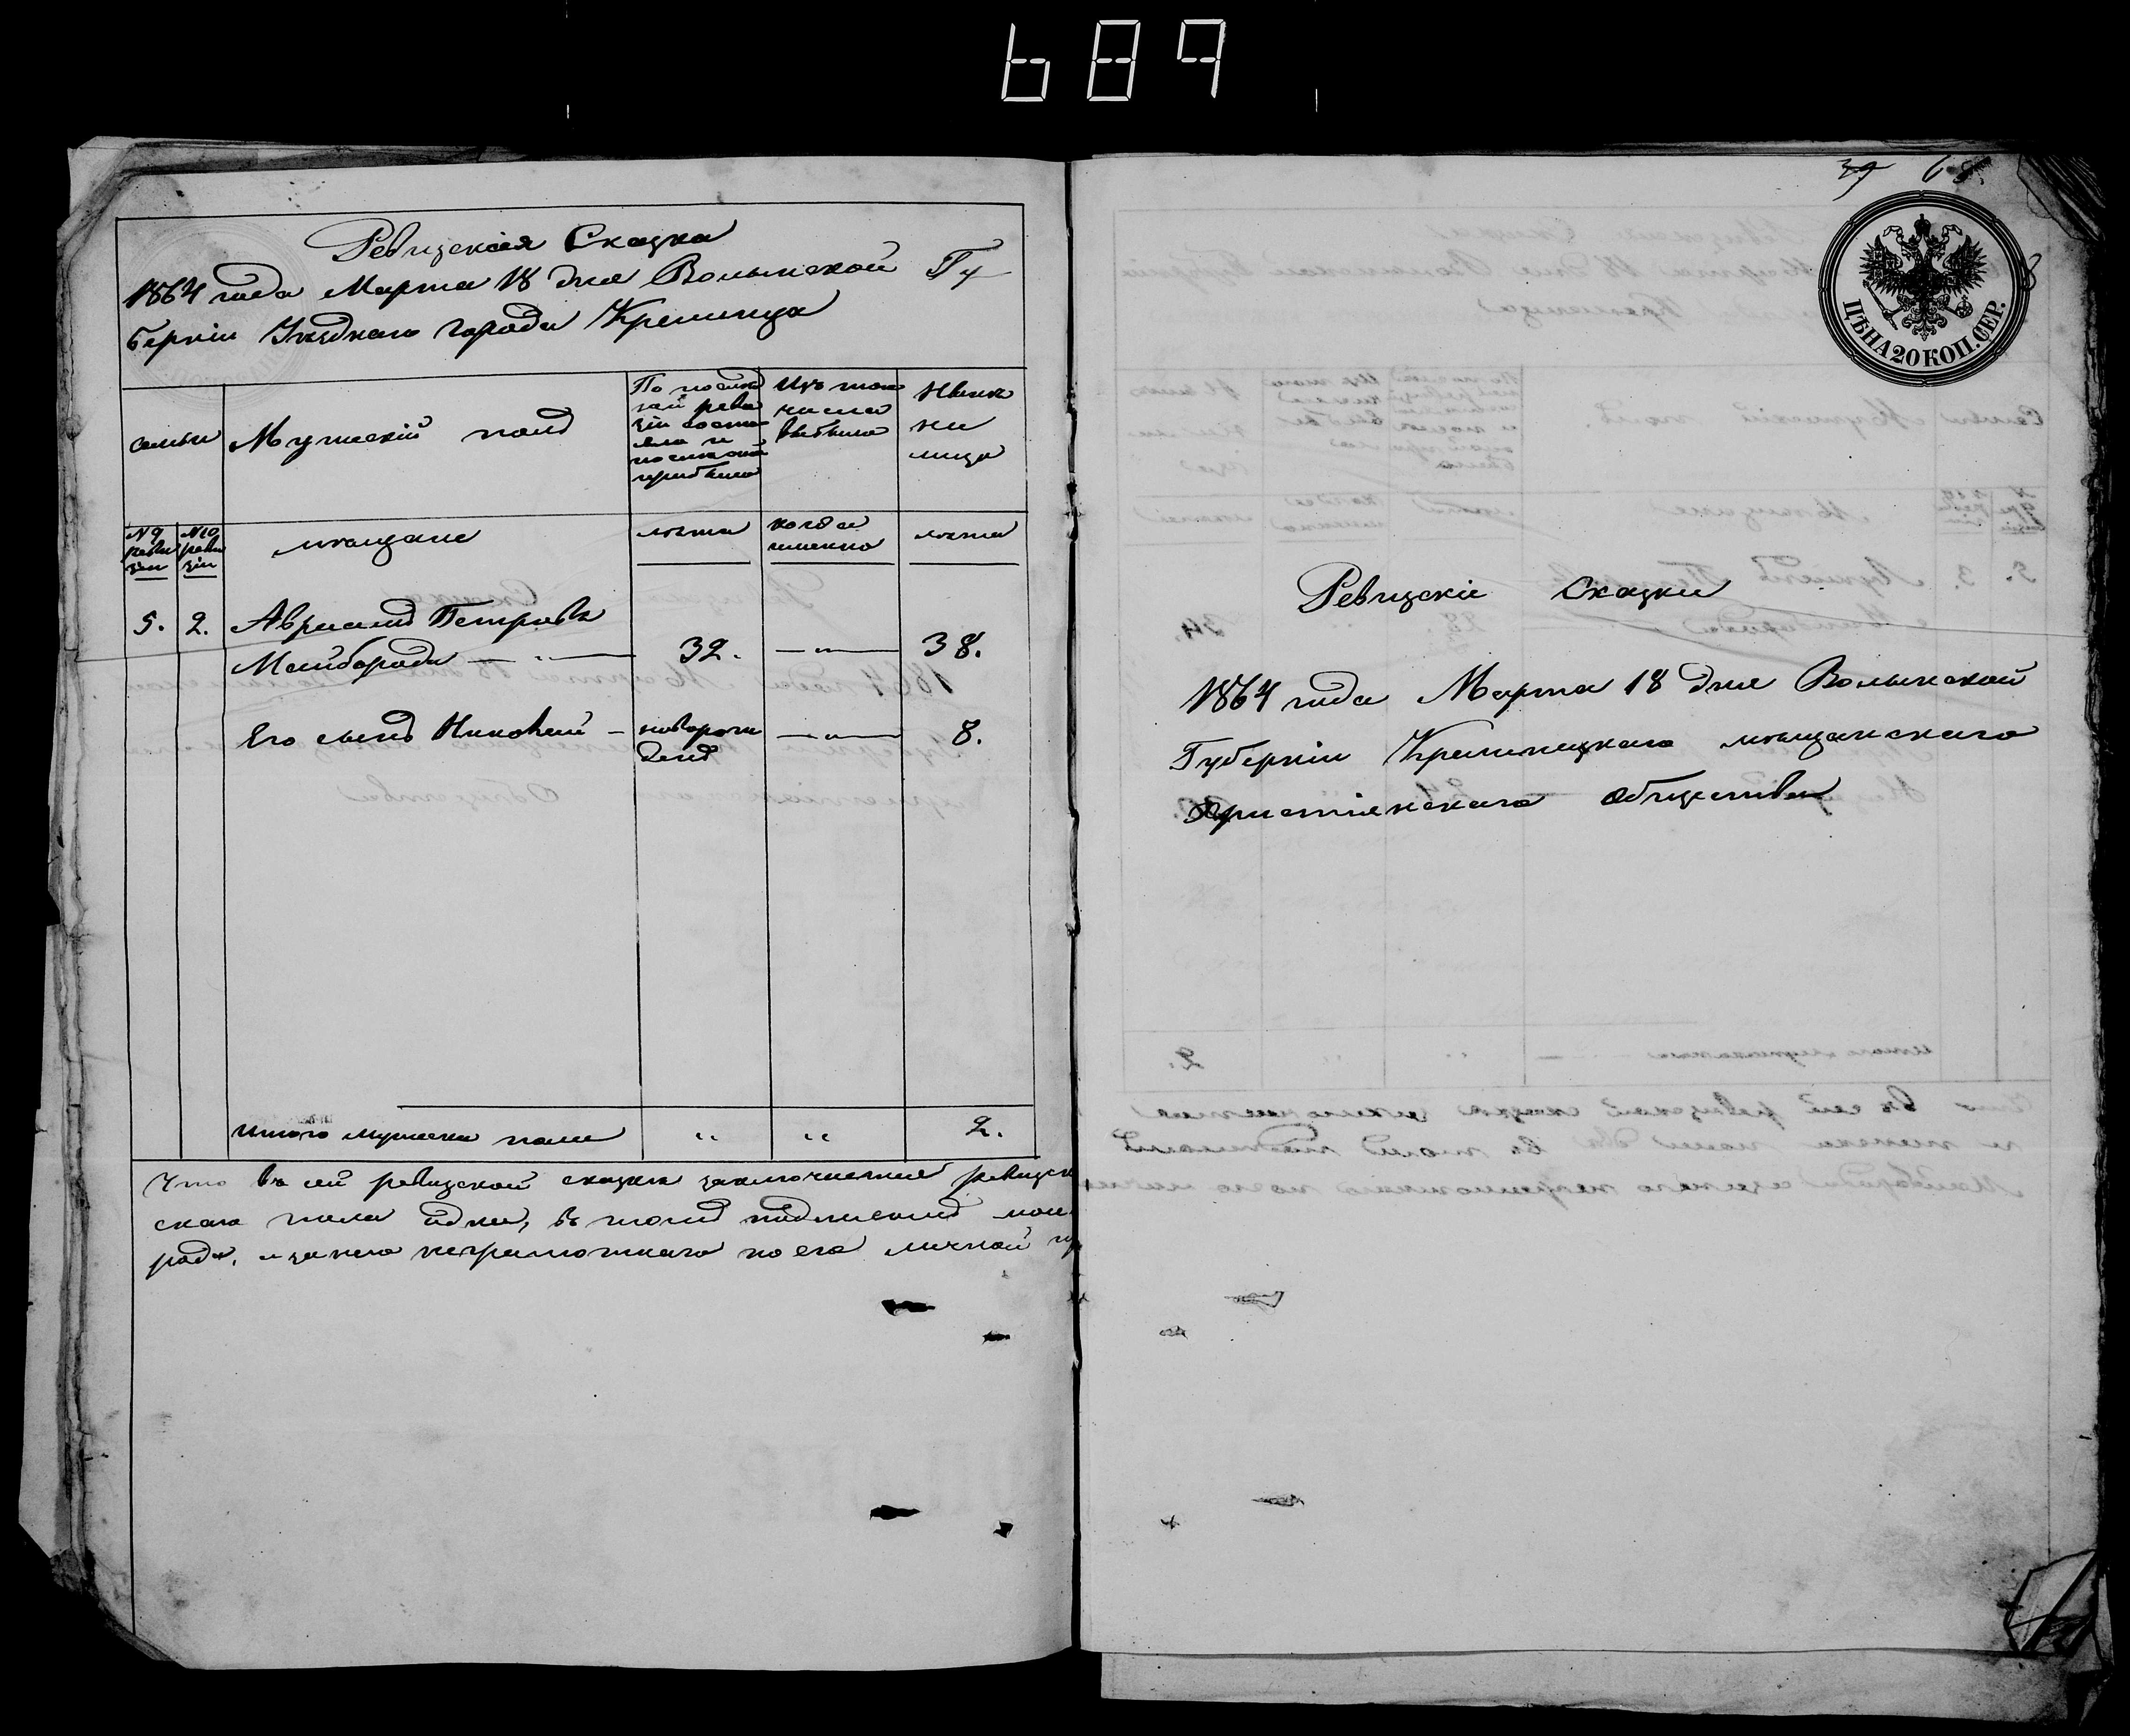 689
Ревизская Сказка
1864 года Марта 18 дня Волынской Гу
берніи Уѣзднаго города Кременца
семьи
Мужескій полъ
По послѣд
ней реви
зіи состо
яло и
послѣ оной
прибыло
Изъ того
числа
выбыло
Нынѣ
на
лицо
№ 9
реви
зіи
№ 10
реви
зіи
мѣщане
лѣта
когда
именно
лѣта
5. 2. Авраамъ Петровъ
Майборода — " — 32. — " — 38.
Его сынъ Николай — новорож — " — 8.
денъ
Итого мужеска пола " " 2.
Что въ сей ревизской сказкѣ заключается ревизск
скаго пола въ томъ подписомъ
рода, и за него неграмотнаго по его личной
39 68
ЦѢНА 20 КОП. СЕР.
Ревизскіе Сказки
1864 года Марта 18 дня Волынской
Губерніи Кременецкаго мѣщанскаго
Христіянскаго Общества